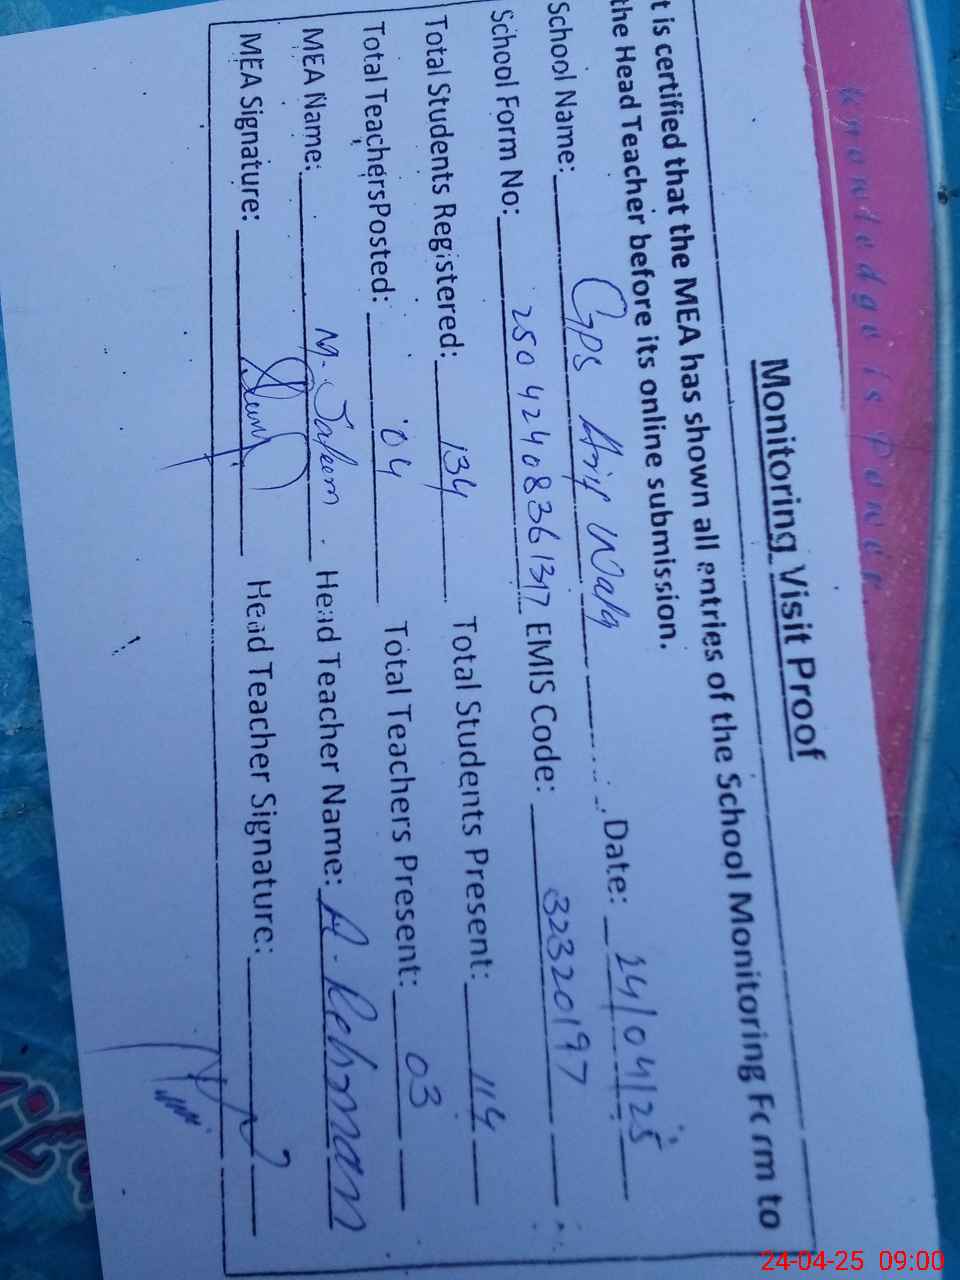 Knowledge is Power.
Monitoring Visit Proof
t is certified that the MEA has shown all entries of the School Monitoring Form to
the Head Teacher before its online submission.
School Name: GPS Arif Wala Date: 24/04/25
School Form No: 25042408361317 EMIS Code: 32320197
Total Students Registered: 134 Total Students Present: 114
Total TeachersPosted: 04 Total Teachers Present: 03
MEA Name: M. Saleem Head Teacher Name: A. Rehman
MEA Signature: Head Teacher Signature:
24-04-25 09:00